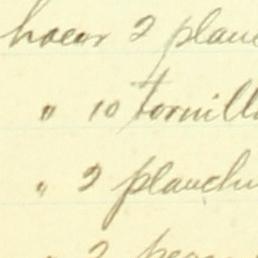 hacer 2 planc
" 10 tornillo
" 2 planchu
" 2